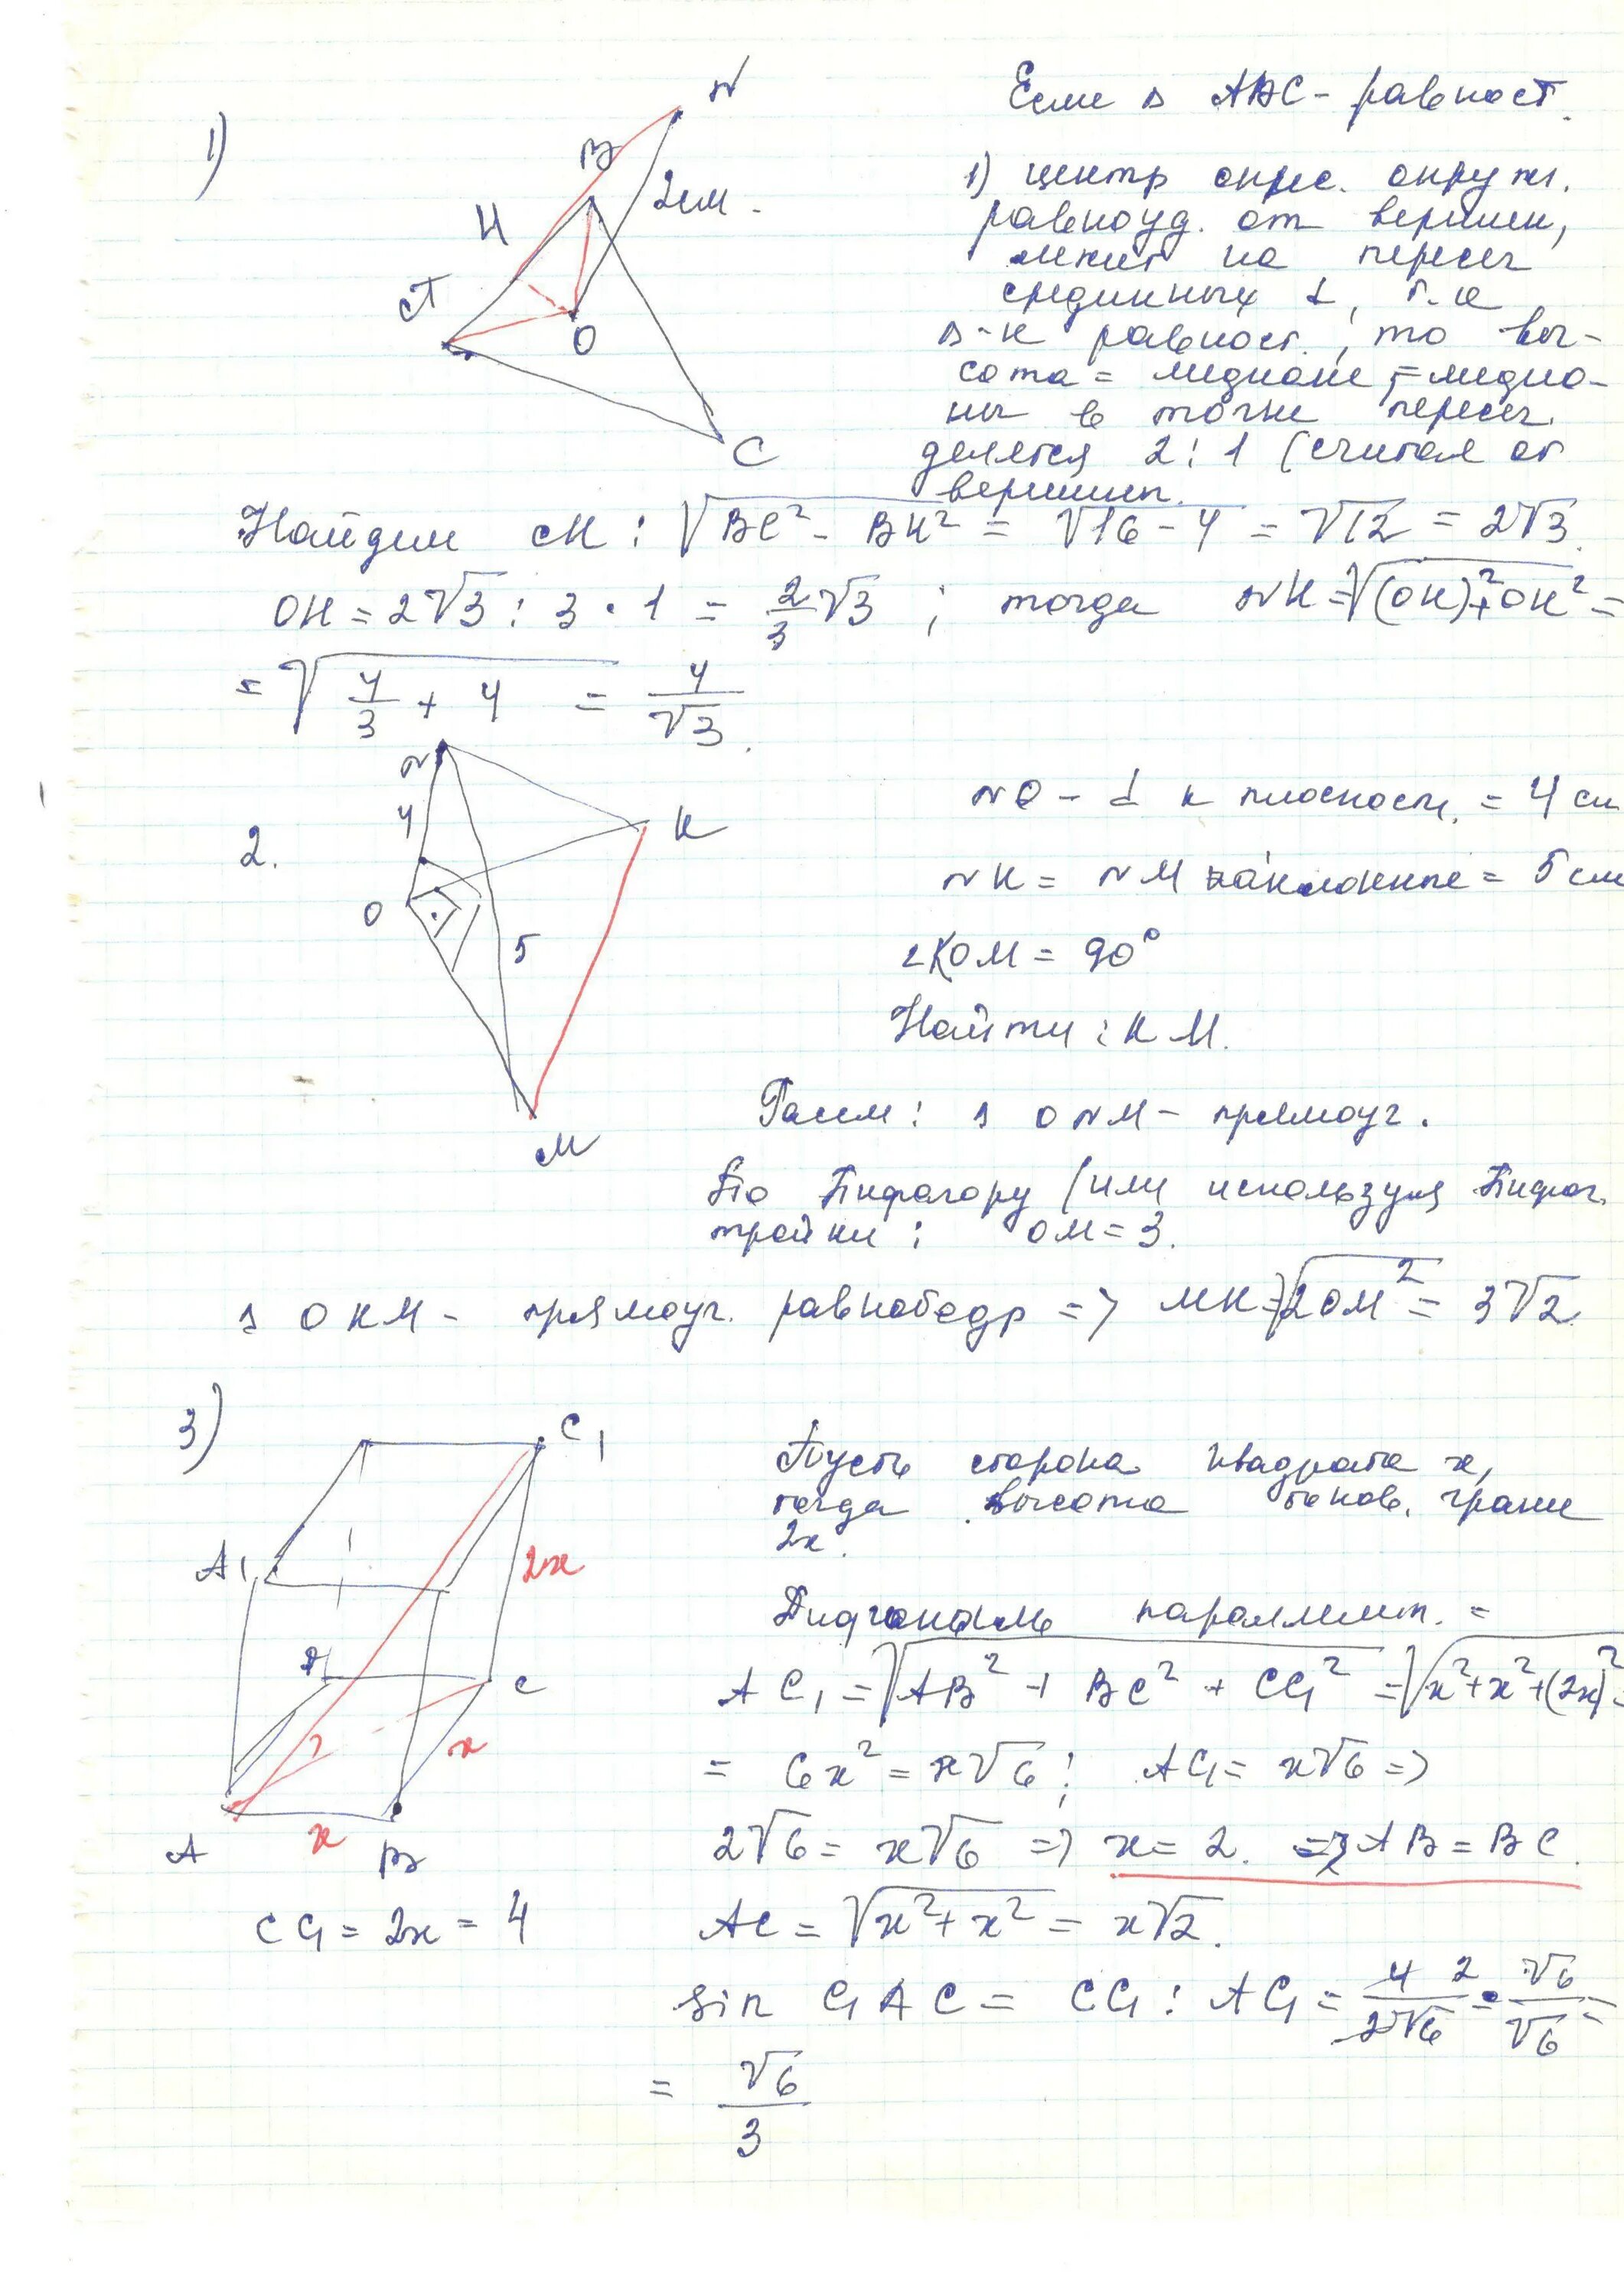 1)
N
B
2см.
H
A
O
C
Если Δ ABC - равност.
1) центр опис. окружн.
равноуд. от вершин,
лежит на пересеч
срединных ⊥, т.к
Δ-к равност., то вы-
сота = медиане, медиа-
ны в точке пересеч.
делятся 2:1 (считая от
вершин.
Найдем CH: √BC² - BH² = √16-4 = √12 = 2√3.
OH = 2√3 : 3 · 1 = 2/3 √3 ; тогда NH = √(ON)²+OH² =
= √4/3 + 4 = 4/√3.
2.
N
4
K
O
5
M
NO - ⊥ к плоскост. = 4 см
NK = NM наклонные = 5 см
∠KOM = 90°
Найти: KM.
Рассм: Δ ONM - прямоуг.
По Пифагору (или используя Пифаг.
тройки: OM = 3.
Δ OKM - прямоуг. равнобедр => MK = √2OM² = 3√2.
3)
C₁
A₁
2x
C
x
A
x
B
CC₁ = 2x = 4
Пусть сторона квадрата x,
тогда высота боков. грани
2x.
Диагональ параллелип. =
AC₁ = √AB² + BC² + CC₁² = √x²+x²+(2x)² =
= 6x² = x√6; AC₁ = x√6 =>
2√6 = x√6 => x = 2. => AB = BC.
AC = √x²+x² = x√2.
sin C₁AC = CC₁ : AC₁ = 4 2/2√6 · √6/√6 =
= √6/3